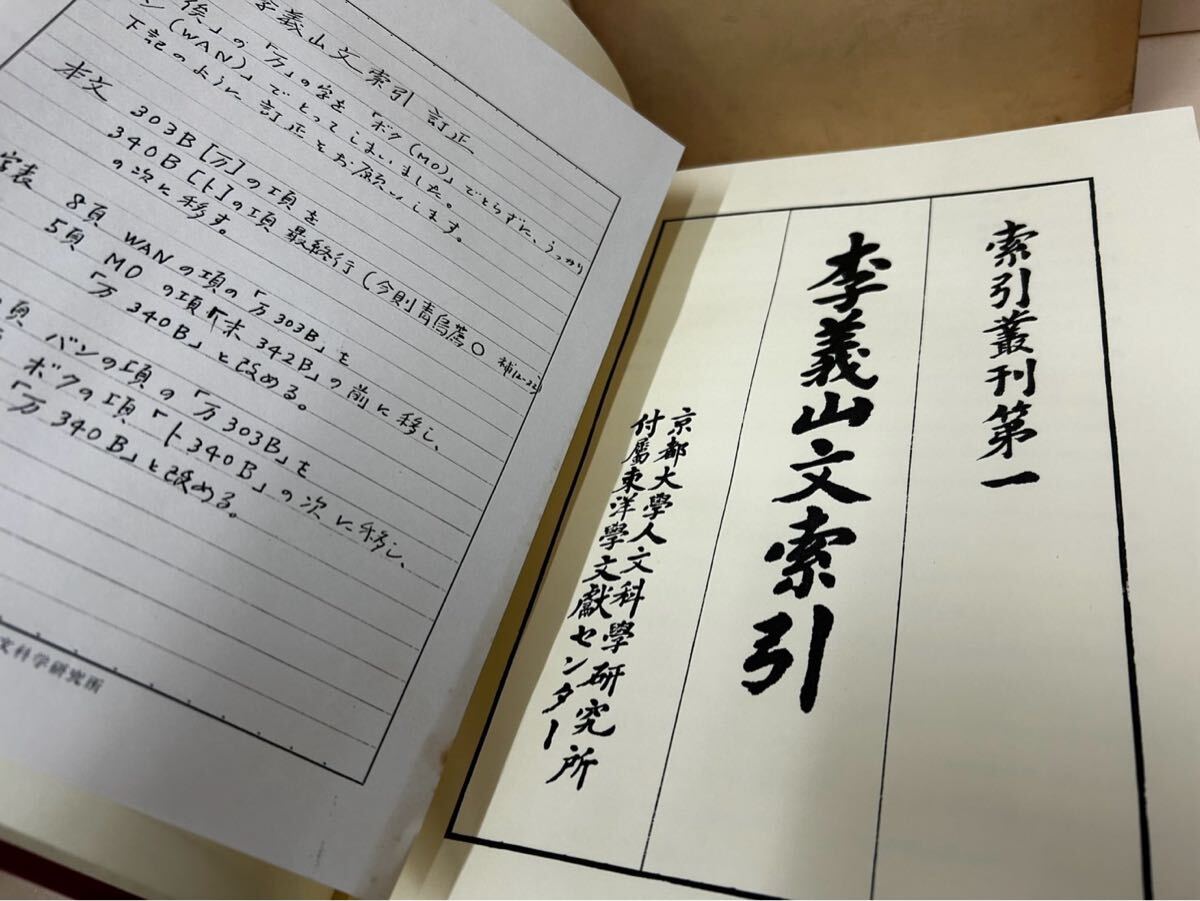 李義山文索引 訂正
俟」の「万」の字を「ボク(MO)」でとらずに、うっかり
ン(WAN)」でとってしまいました。
下記のように訂正とお願いします。
本文 303B[万]の項を
340B[卜]の項 最終行(今則青鳥薦〇 補12-22)
の次に移す。
字表 8頁 WANの項の「万303B」を
5頁 MOの項「末 342B」の前に移し、
「万 340B」と改める。
頁 バンの項の「万303B」を
ボクの項「卜340B」の次に移し、
「万 340B」と改める。
文科学研究所
索引叢刊第一
李義山文索引
京都大學人文科學研究所
付屬東洋學文獻センター